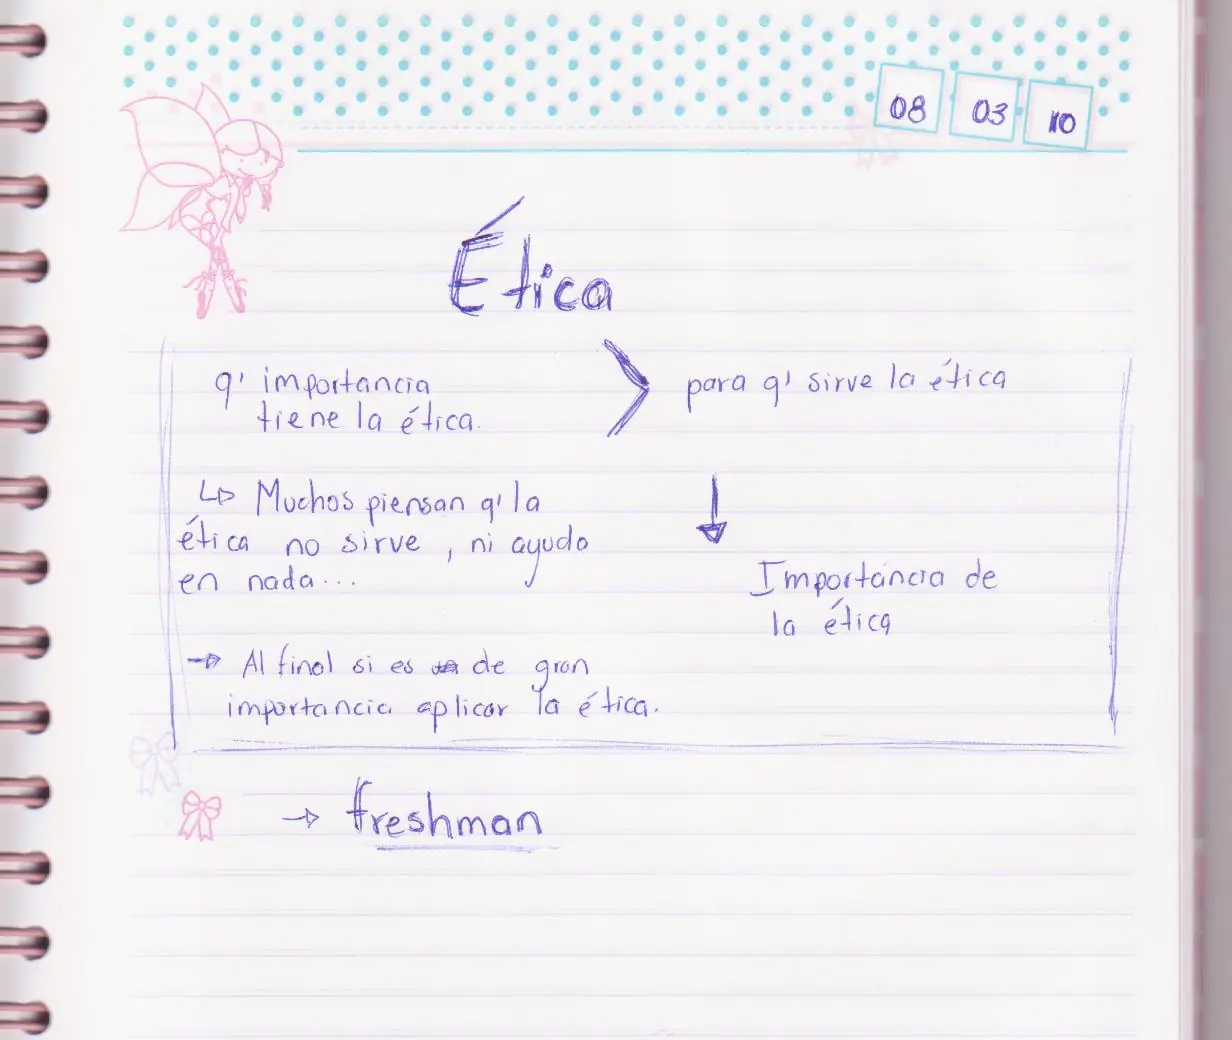 08 03 10
Ética
q' importancia
tiene la ética.
para q' sirve la ética
Muchos piensan q' la
ética no sirve, ni ayuda
en nada...
Importancia de
la ética
Al final si es de gran
importancia aplicar la ética.
freshman